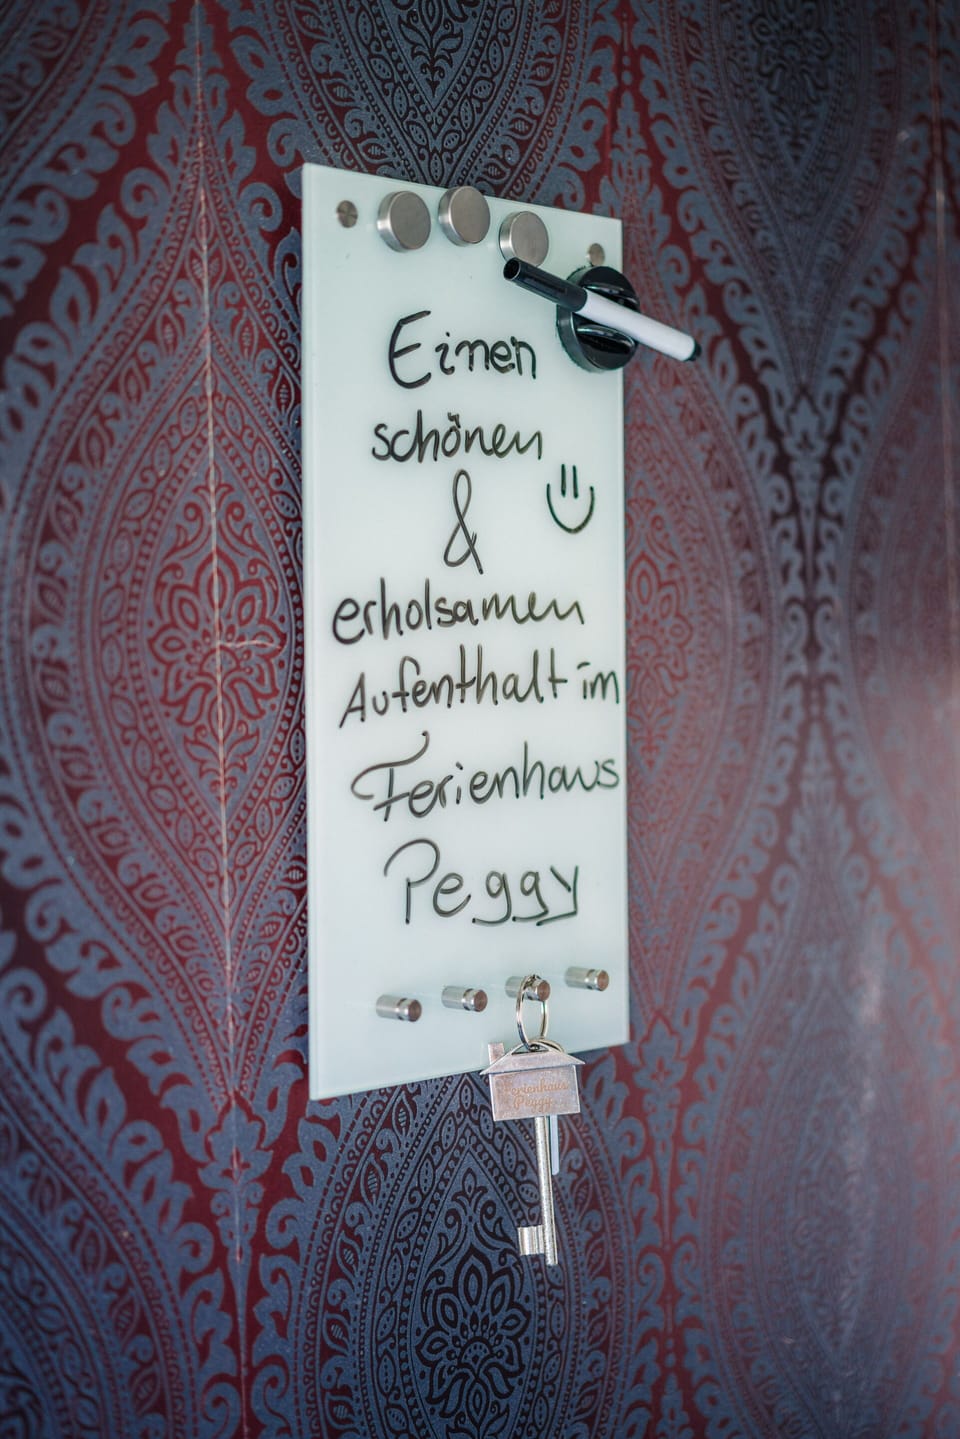 Einen
schönen
&
erholsamen
Aufenthalt im
Ferienhaus
Peggy
Ferienhaus
Peggy